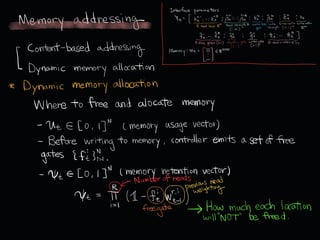 Memory addressing
Interface parameters
Content-based addressing
Dynamic memory allocation
* Dynamic memory allocation
Where to free and alocate memory
- u_t ∈ [0,1]^N (memory usage vector)
- Before writing to memory, controller emits a set of free
gates {f_t^i}
- ψ_t ∈ [0,1]^N (memory retention vector)
Number of reads
previous read
weighting
ψ_t = ∏_{i=1}^{R} (1 - f_t^i w_{t-1}^{r,i})
free gate
→ How much each location
will 'NOT' be freed.